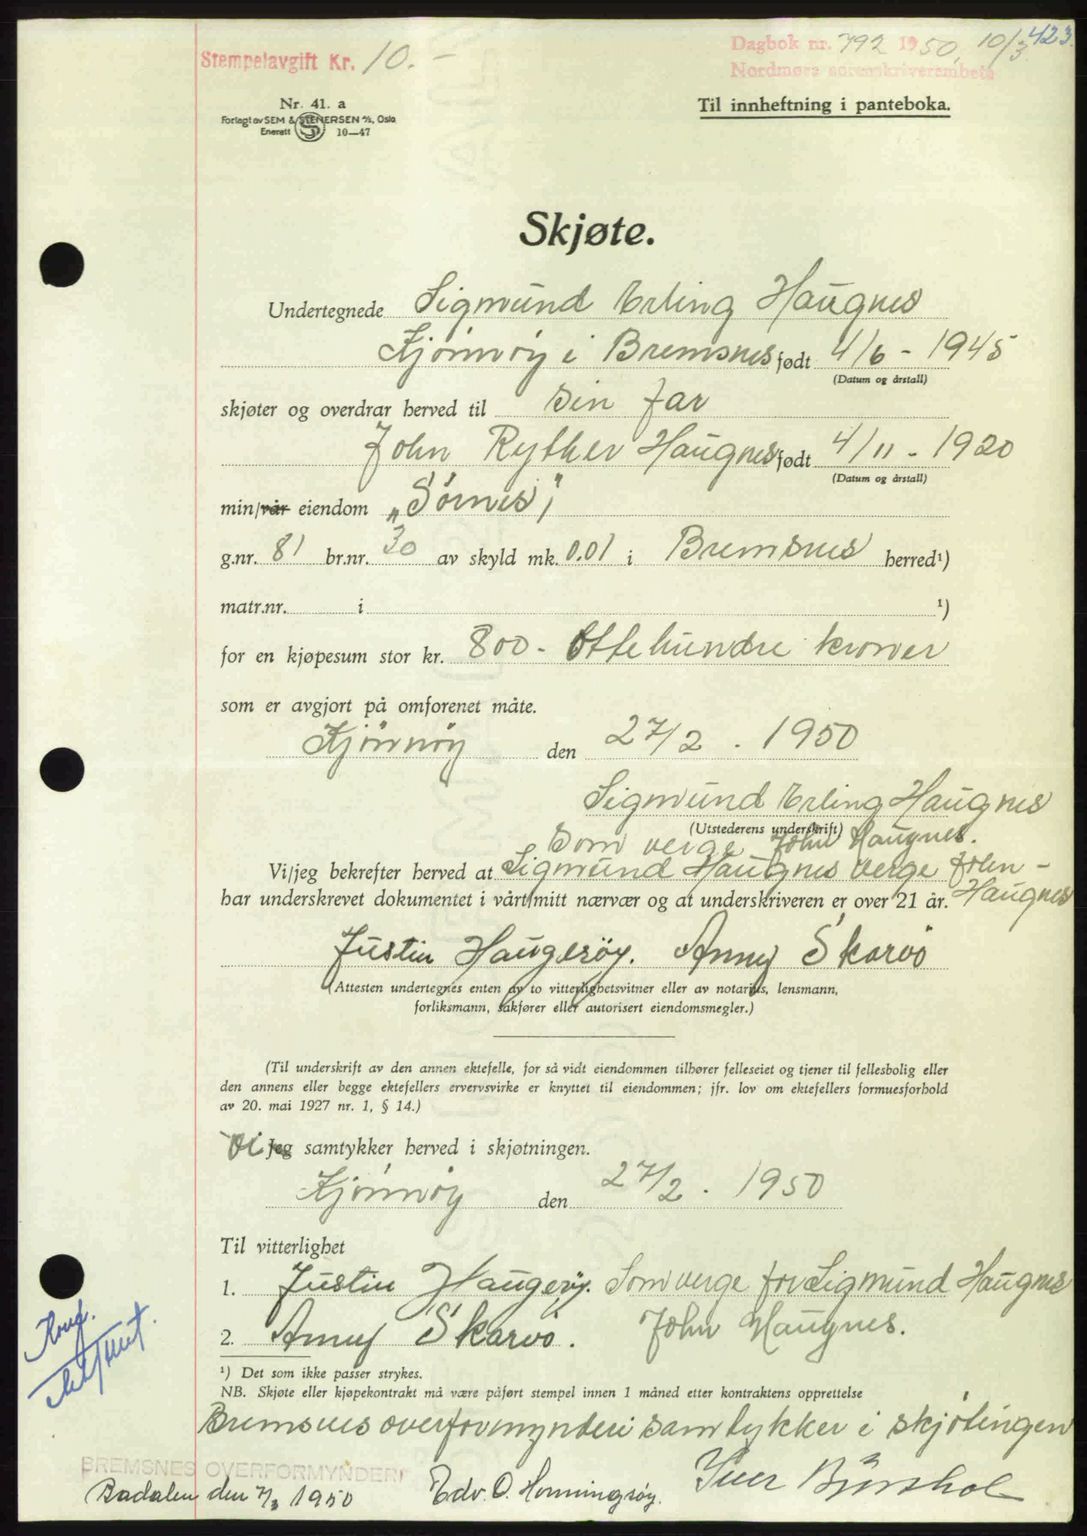 423.
Stempelavgift Kr. 10.-
Dagbok nr. 792 1950, 10/3
Nordmøre sorenskriverembete
Nr. 41. a
Forlagt av SEM & STENERSEN A/S, Oslo
Enerett S 10—47
Til innheftning i panteboka.
Skjøte.
Undertegnede Sigmund Erling Haugnes
Kjönnöy i Bremsnes født 4/6 - 1945
(Datum og årstall)
skjøter og overdrar herved til sin far
John Ryther Haugnes født 4/11 - 1920
(Datum og årstall)
min/vår eiendom „Sörnes"
g.nr. 81 br.nr. 30 av skyld mk. 0.01 i Bremsnes herred¹)
matr.nr. i ¹)
for en kjøpesum stor kr. 800 - Otte hundre kroner
som er avgjort på omforenet måte.
Kjönnöy den 27/2 . 1950
Sigmund Erling Haugnes
(Utstederens underskrift)
Som verge John Haugnes.
Vi/jeg bekrefter herved at Sigmund Haugnes verge John
har underskrevet dokumentet i vårt/mitt nærvær og at underskriveren er over 21 år. Haugnes
Justin Haugesöy. Anny Skarvö
(Attesten undertegnes enten av to vitterlighetsvitner eller av notarius, lensmann,
forliksmann, sakfører eller autorisert eiendomsmegler.)
(Til underskrift av den annen ektefelle, for så vidt eiendommen tilhører felleseiet og tjener til fellesbolig eller
den annens eller begge ektefellers ervervsvirke er knyttet til eiendommen; jfr. lov om ektefellers formuesforhold
av 20. mai 1927 nr. 1, § 14.)
Vi Jeg samtykker herved i skjøtningen.
Kjönnöy den 27/2 . 1950
Til vitterlighet
1. Justin Haugesöy. Som verge for Sigmund Haugnes
2. Anny Skarvö. John Haugnes.
¹) Det som ikke passer strykes.
NB. Skjøte eller kjøpekontrakt må være påført stempel innen 1 måned etter kontraktens opprettelse
Bremsnes overformynderi samtykker i skjötingen
BREMSNES OVERFORMYNDERI
Badalen den 7/3 1950 Edv. O. Honningsöy. Iver Bjørshol